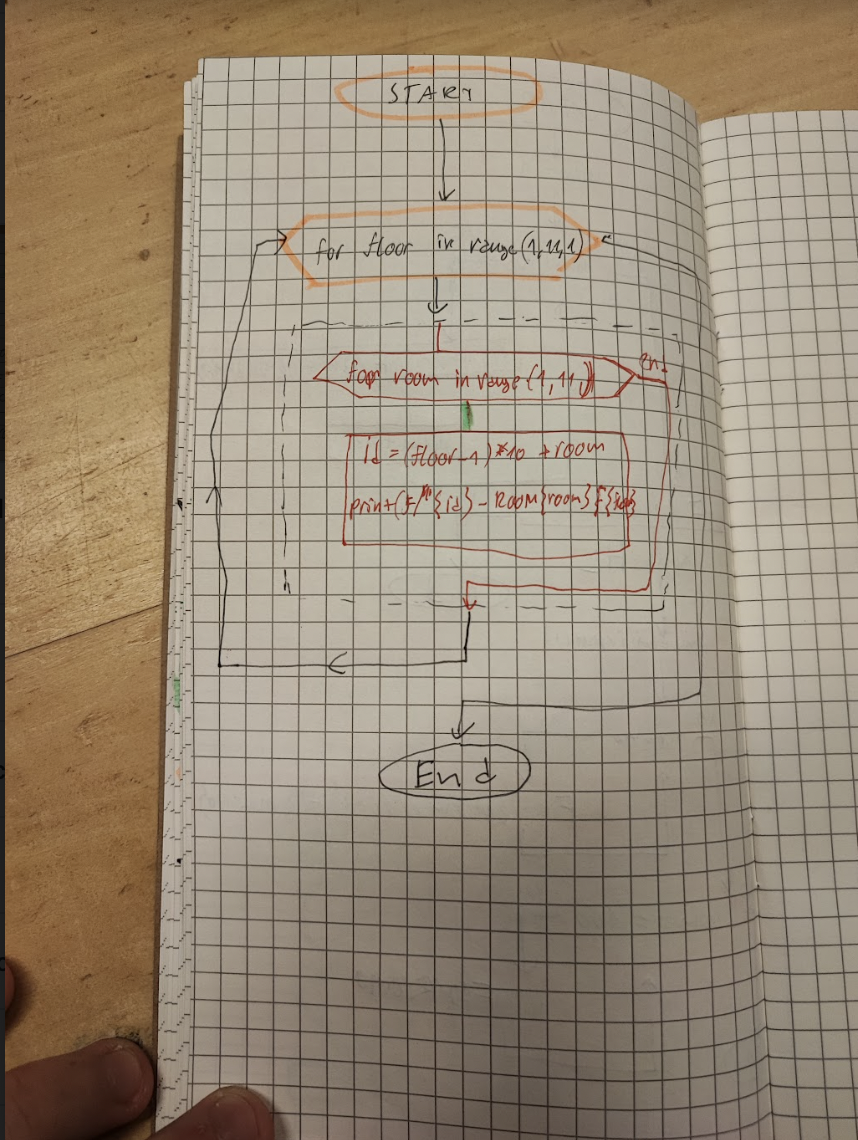 START
for floor in range(1,11,1)
for room in range(1,11,)
end
id = (floor-1)*10 +room
print(F/"{id} - ROOM{room}
End